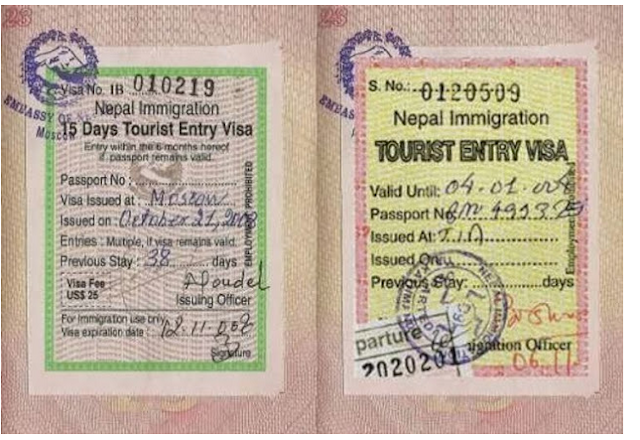 23
EMBASSY OF NE
Moscow
Visa No. 1B 010219
Nepal Immigration
15 Days Tourist Entry Visa
Entry within the 6 months hereof
if passport remains valid.
Passport No :
Visa Issued at : Moscow
Issued on : October 21, 2008
Entries : Multiple, if visa remains valid.
Previous Stay : 38 days
EMPLOYMENT PROHIBITED
Visa Fee
US$ 25
Issuing Officer
For immigration use only
Visa expiration date :
Signature
23
EMBAS
Mos
S. No.: 0120509
Nepal Immigration
TOURIST ENTRY VISA
Valid Until: 04.01.
Passport No.
Issued At: T.I.A
Issued On:
Previous Stay: days
Employment
parture
2020201
Immigration Officer
06.11